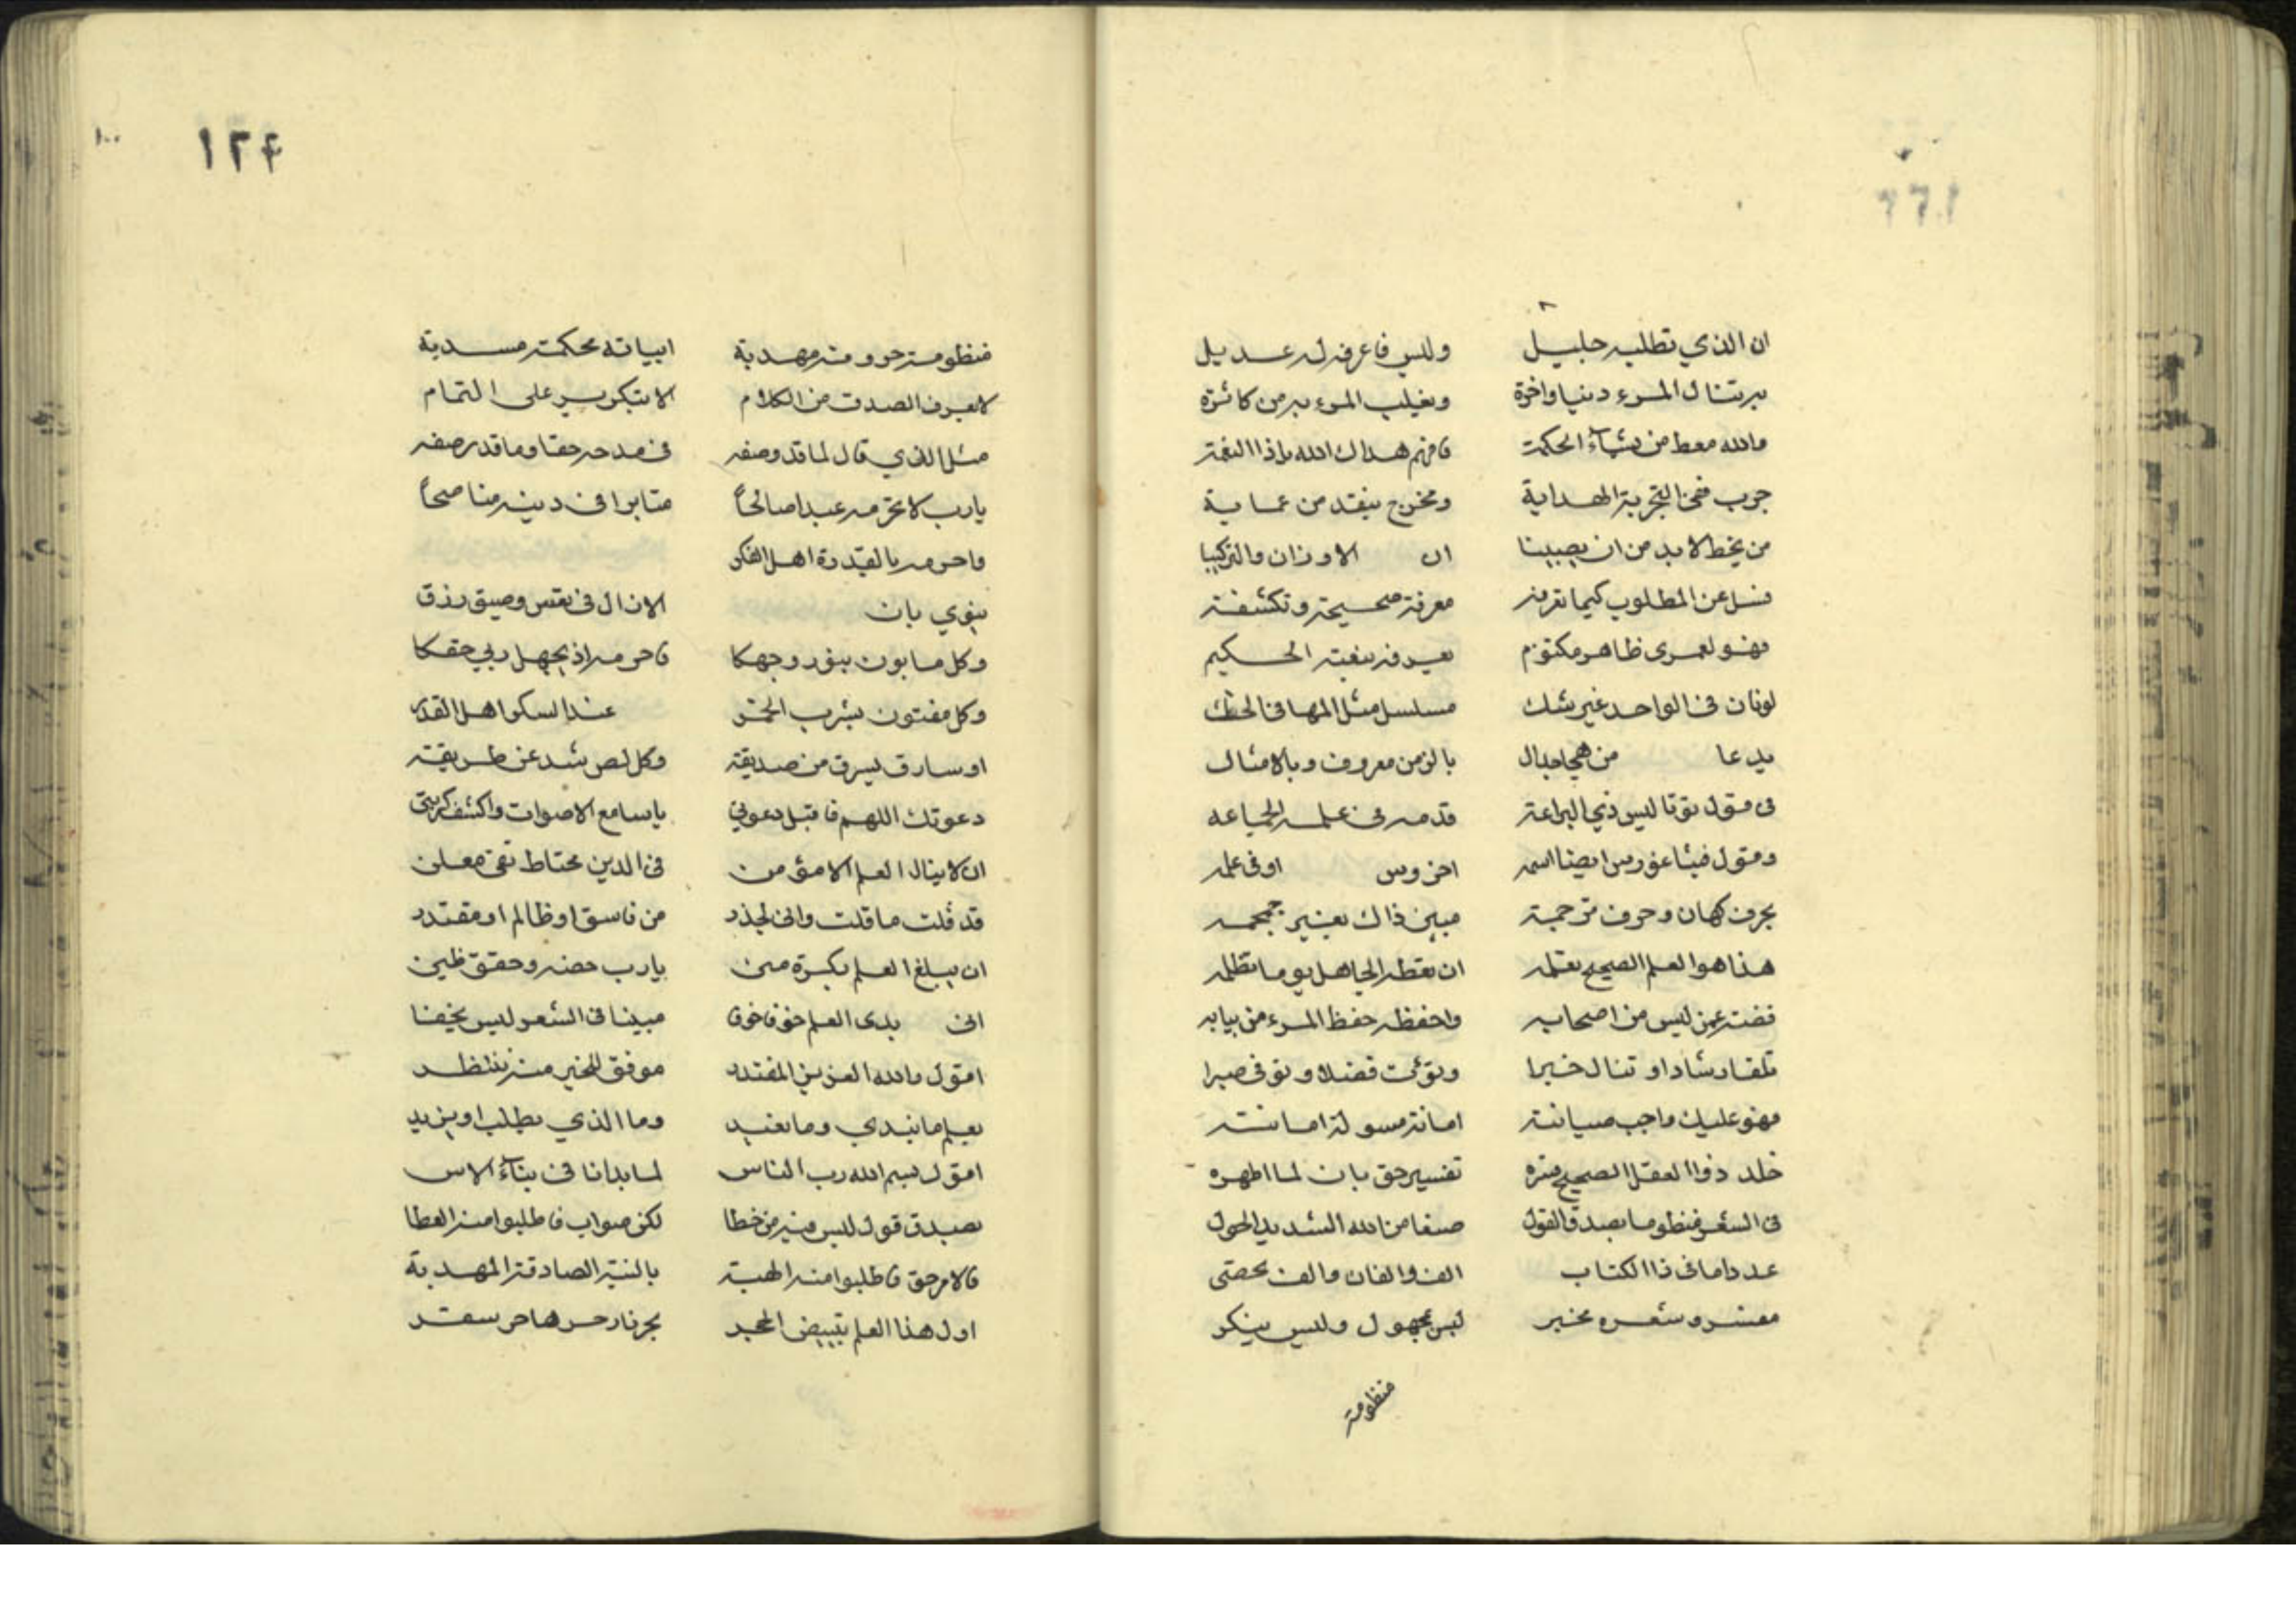 ان الذي تطلبه جليل وليس فاعرفه له عديل
به ينال المرء دنيا واخرة ويغلب المرء به من كاثره
والله معط من يشآء الحكمة فافهم هداك الله ياذا النعمة
جرب ففى التجربة الهداية ومخرج ينقذ من عماية
من يخط لابد من ان يصيبنا ان الاوزان والتركيبا
فسل عن المطلوب كيما تعرفه معرفة صحيحة وتكشفه
فهو لعمرى ظاهر مكتوم يعرفه بنعته الحكيم
لونان فى الواحد غير شك مسلسل مثل المها فى الحك
يدعا من جبال بالرمز معروف وبالامثال
فى قول قوتا ليس ذي البراعة قدمه فى علمه الجماعه
وقول فيثاغورس ايضا اسمه اخروس اوفى علمه
بحرف كهان وحرف ترجمة مبين ذاك بغير جمجمه
هذا هو العلم الصحيح تعلمه ان تعطه الجاهل يوما تظلمه
فصنه عمن ليس من اصحابه واحفظه حفظ المرء من بيابه
تلقا رشادا وتنال خيرا وتؤت فضلا وتوفى صبرا
فهو عليك واجب صيانته امانة مسولة امانته
خلد ذوا العقل الصحيح تفسير حق بان لما اظهره
فى الشعر منظوما بصدق القول صنفا من الله الشديد الحول
عدد اما فى ذا الكتاب الف والفان والف تحصى
مفسر وشعره مخبر ليس بمجهول وليس ينكر
منظومة
١٢٤
١٠٠
منظومة حروفه مهدية ابياته محكمة مسدية
لا يعرف الصدق من الكلام الا بتكريره على التمام
مثل الذي قال لما قد وصفه فى مدحه حقا وما قد رصفه
يارب لا تحرمه عبدا صالحاً مثابرا فى دينه مناصحاً
واحرمه يا اهل الفكر
ينوي بان لازال فى تعس وضيق رزق
وكل مابون بنور وجهكا فاحرمه اذ يجهل ربي حقكا
وكل مفتون بشرب الخمر عند السكر اهل القدر
او سارق يسرق من صديقه وكل لص شد عن طريقه
دعوتك اللهم فاقبل دعوتي ياسامع الاصوات واكشف كربتى
ان لا ينال العلم الا مؤمن فى الدين محتاط تقى معلن
قد قلت ما قلت وانى لحذر من فاسق او ظالم او مقتدر
ان يبلغ العلم بكره منى يارب حصنه وحقق ظنى
انى بدى العلم خوفا خوفا مبينا فى الشعر ليس يخفا
اقول والله العزيز المقتدر موفق للخير من ينتظر
يعلم ما نبدي وما نعيد وما الذي يطلب او يزيد
اقول بسم الله رب الناس لما بدانا فى بنآء الاس
بصدق قول ليس فيه من خطا لكن صواب فاطلبوا منه العطا
فالامر حق فاطلبوا منه الهبة بالنية الصادقة المهدية
اول هذا العلم تبييض الحجر بحر نار حرها حر سقر